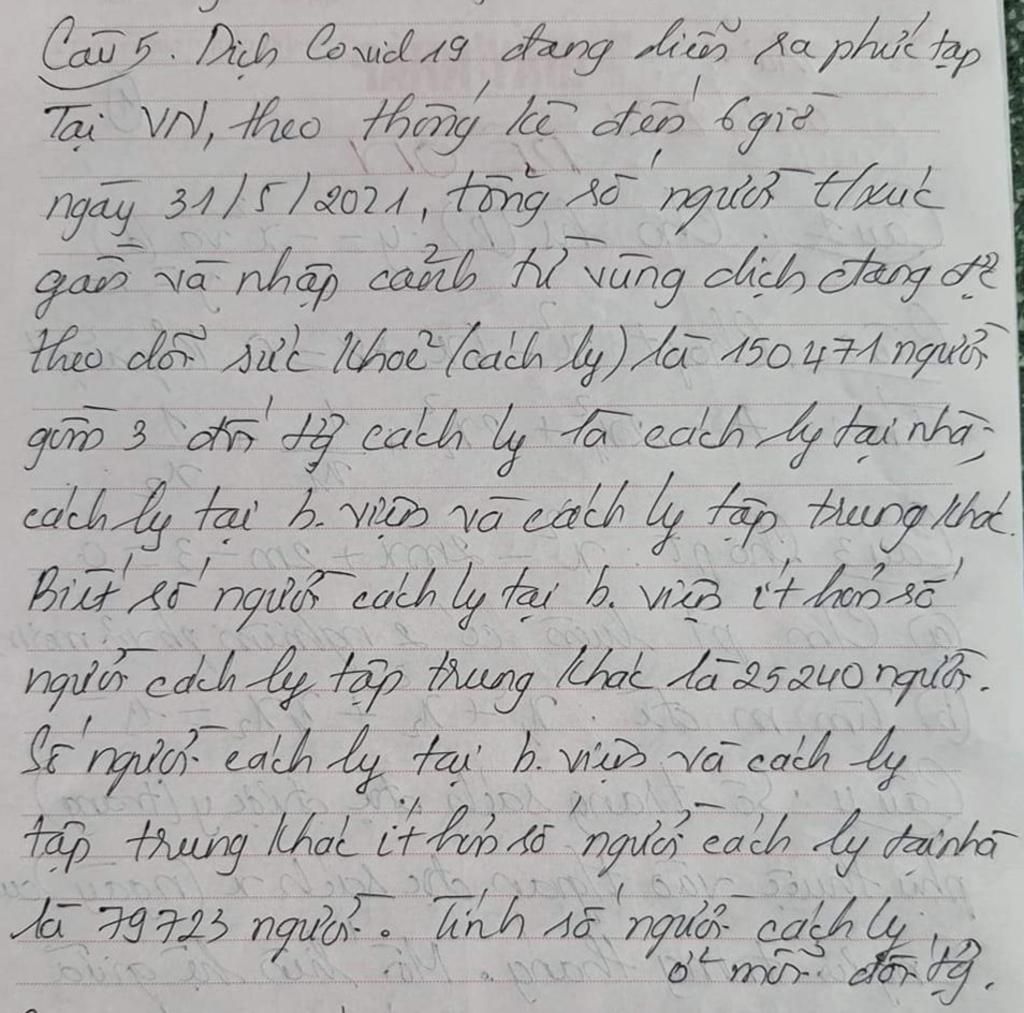 Câu 5. Dịch Covid 19 đang diễn ra phức tạp
Tại VN, theo thống kê đến 6 giờ
ngày 31/5/2021, tổng số người t/xúc
gần và nhập cảnh từ vùng dịch đang đc
theo dõi sức khoẻ (cách ly) là 150471 người
gồm 3 đối tg cách ly là cách ly tại nhà,
cách ly tại b. viện và cách ly tập trung khác.
Biết số người cách ly tại b. viện ít hơn số
người cách ly tập trung khác là 25240 người.
Số người cách ly tại b. viện và cách ly
tập trung khác ít hơn số người cách ly tại nhà
là 79723 người. Tính số người cách ly
ở mỗi đối tg.